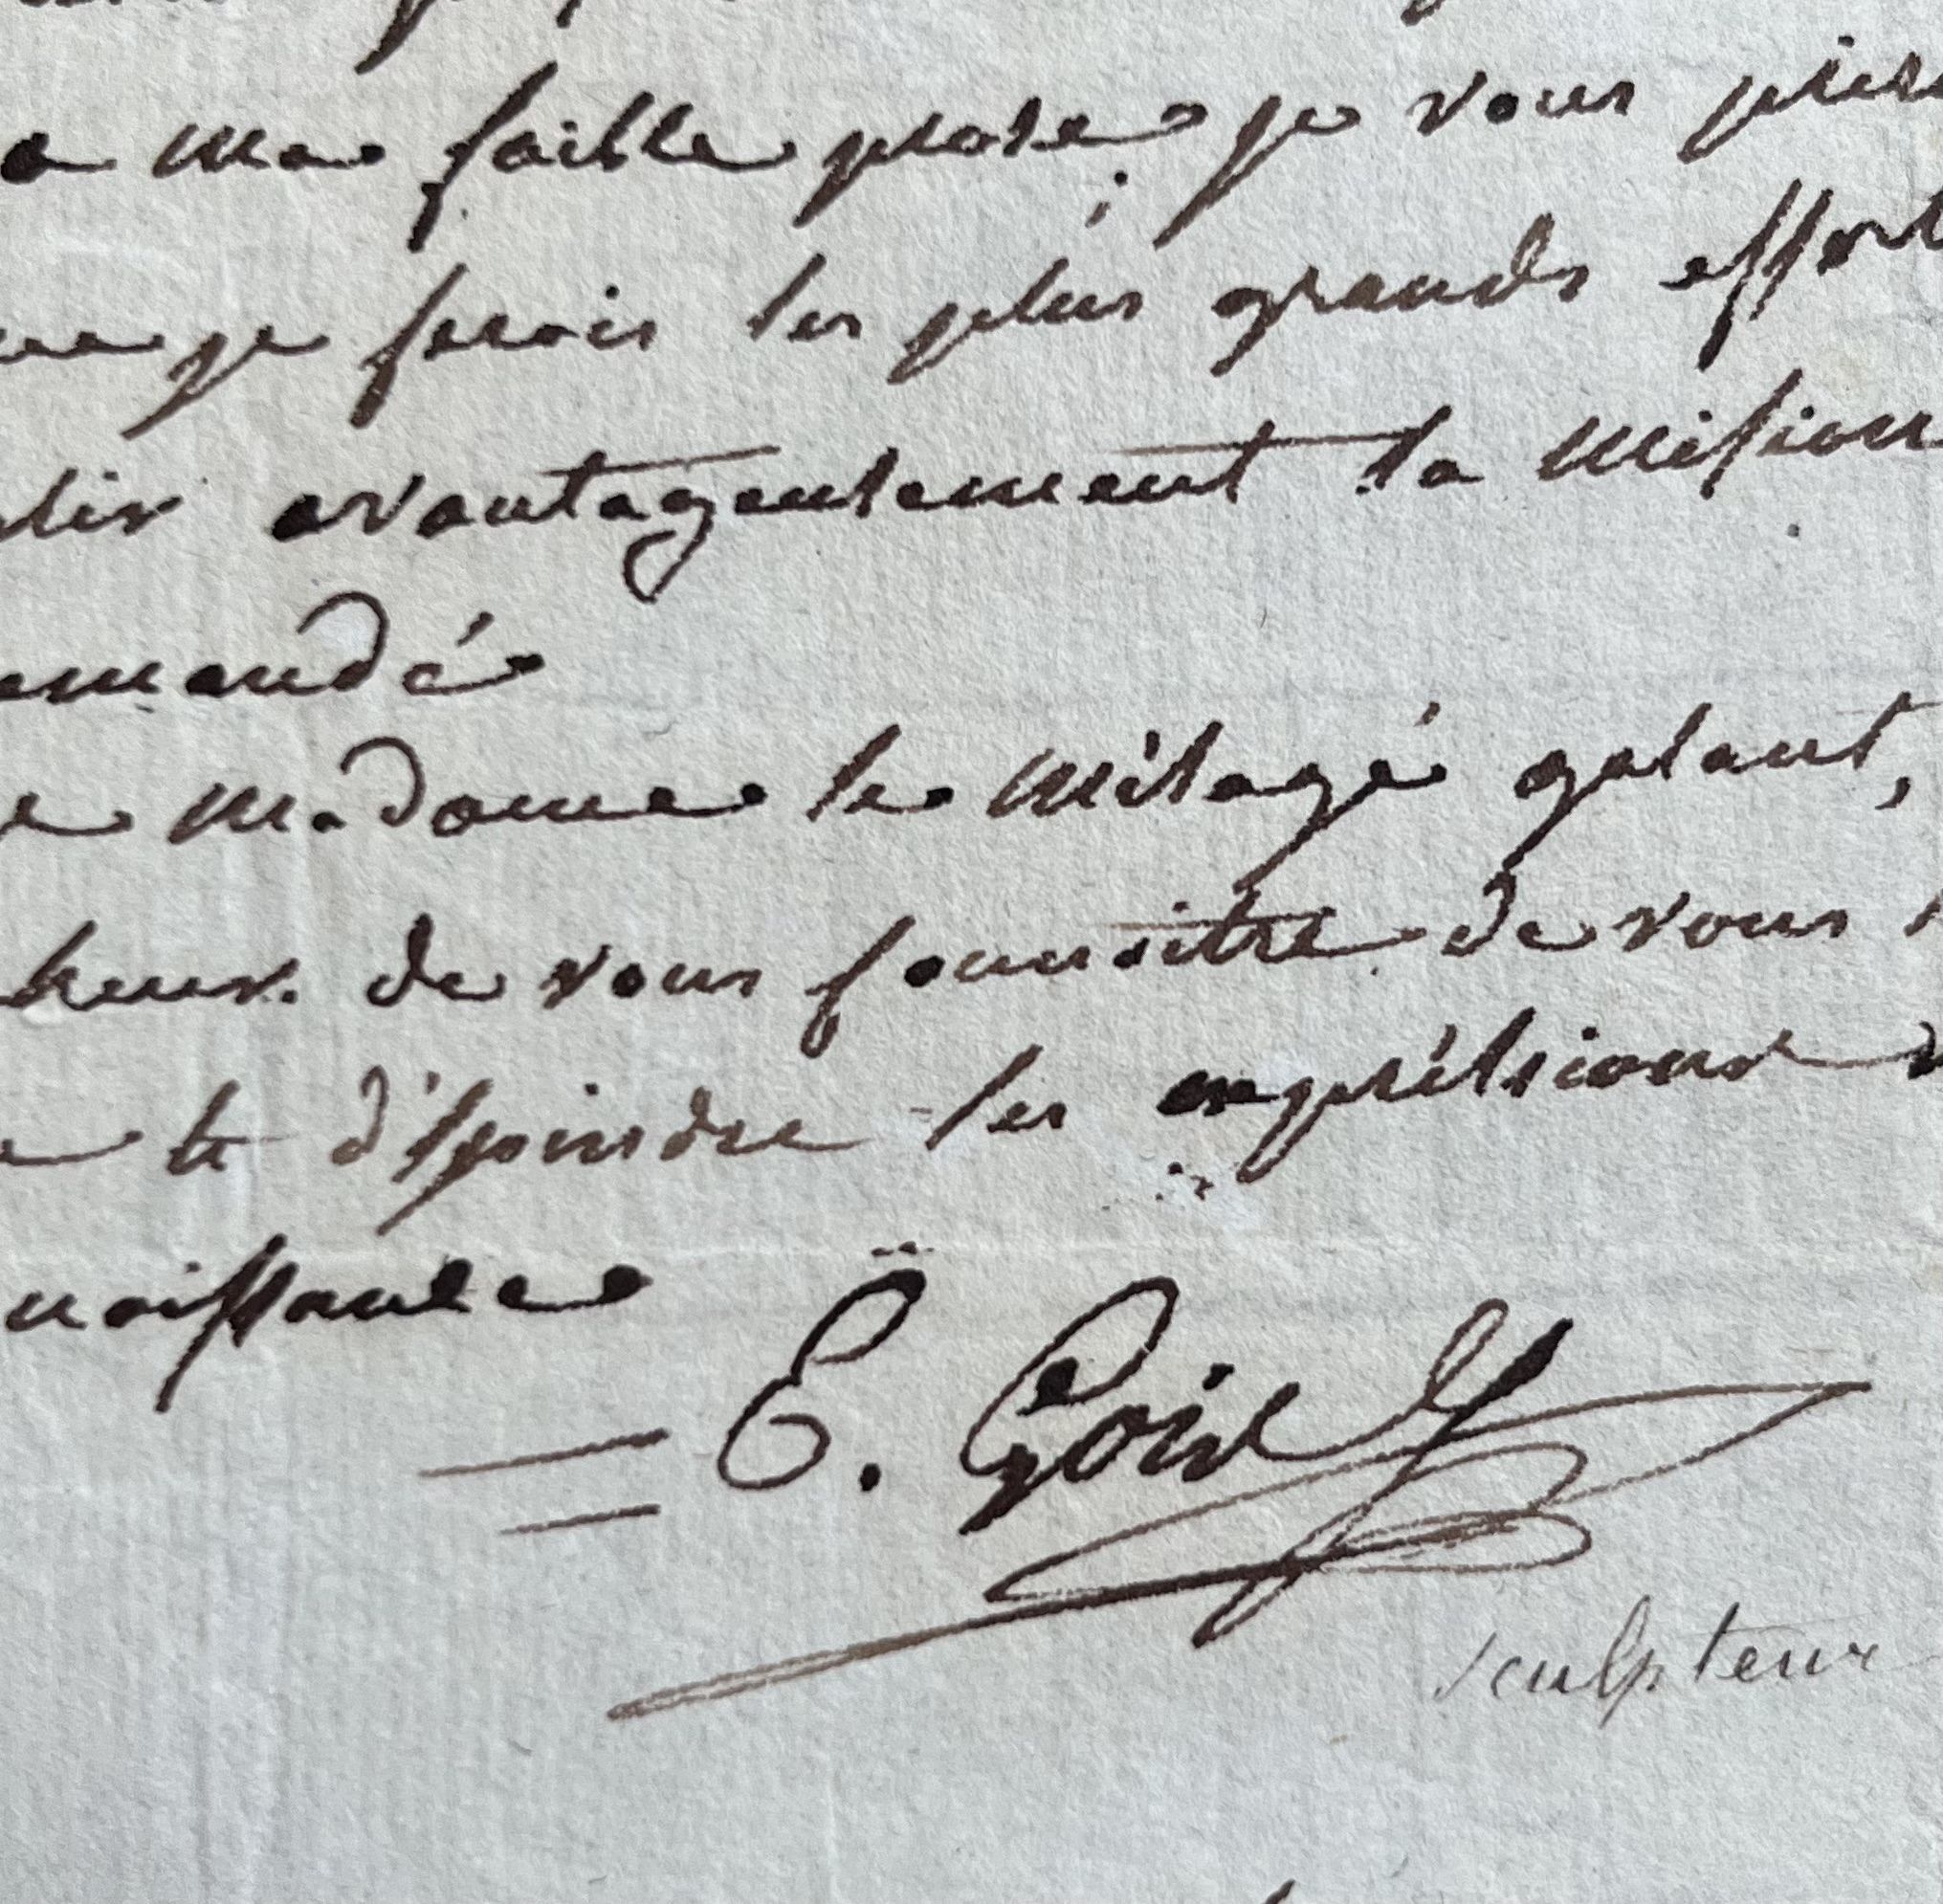 a ma faible prose; je vous prie
je ferois les plus grands effort
plir avantageusement la mission
mmandé
e madame le mélagé galant,
heur de vous connoitre de vous
e te d'épeindre les expressions
noissance
E. Gois
sculpteur